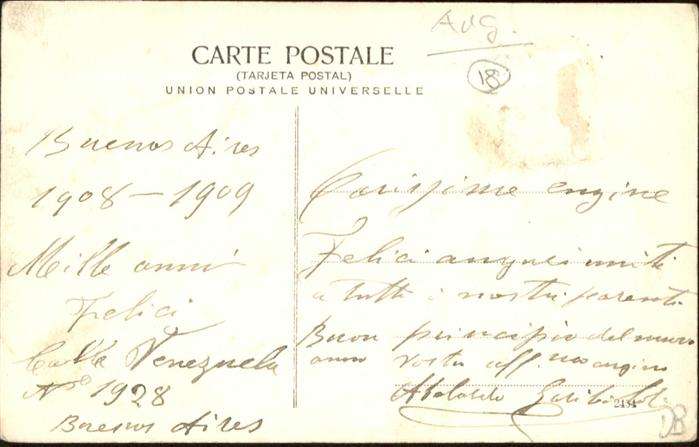 Arg.
18
CARTE POSTALE
(TARJETA POSTAL)
UNION POSTALE UNIVERSELLE
Buenos Aires
1908-1909
Mille anni
Felici
Calle Venezuela
Nº 1928
Buenos Aires
Carissime cugine
Felici auguri uniti
a tutti i nostri parenti
Buon principio del nuovo
anno vostro aff.
2434